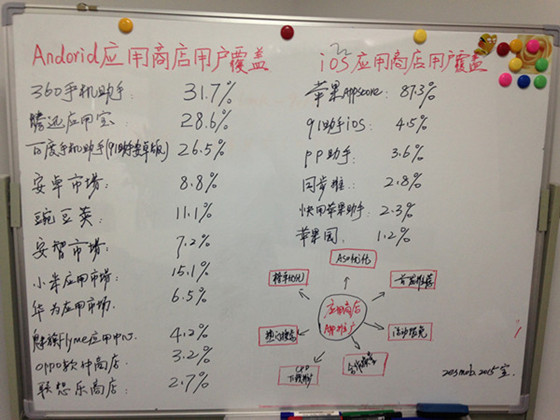 Andorid应用商店用户覆盖
360手机助手: 31.7%
腾迅应用宝: 28.6%
百度手机助手(91助手安卓版) 26.5%
安卓市场: 8.8%
豌豆荚: 11.1%
安智市场: 7.2%
小米应用市场: 15.1%
华为应用市场: 6.5%
魅族Flyme应用中心: 4.2%
oppo软件商店: 3.2%
联想乐商店: 2.7%
iOS应用商店用户覆盖
苹果Appscore: 87.3%
91助手iOS: 4.5%
PP助手: 3.6%
同步推: 2.8%
快用苹果助手: 2.3%
苹果园: 1.2%
ASO优化
首屏推荐
应用商店
APP推广